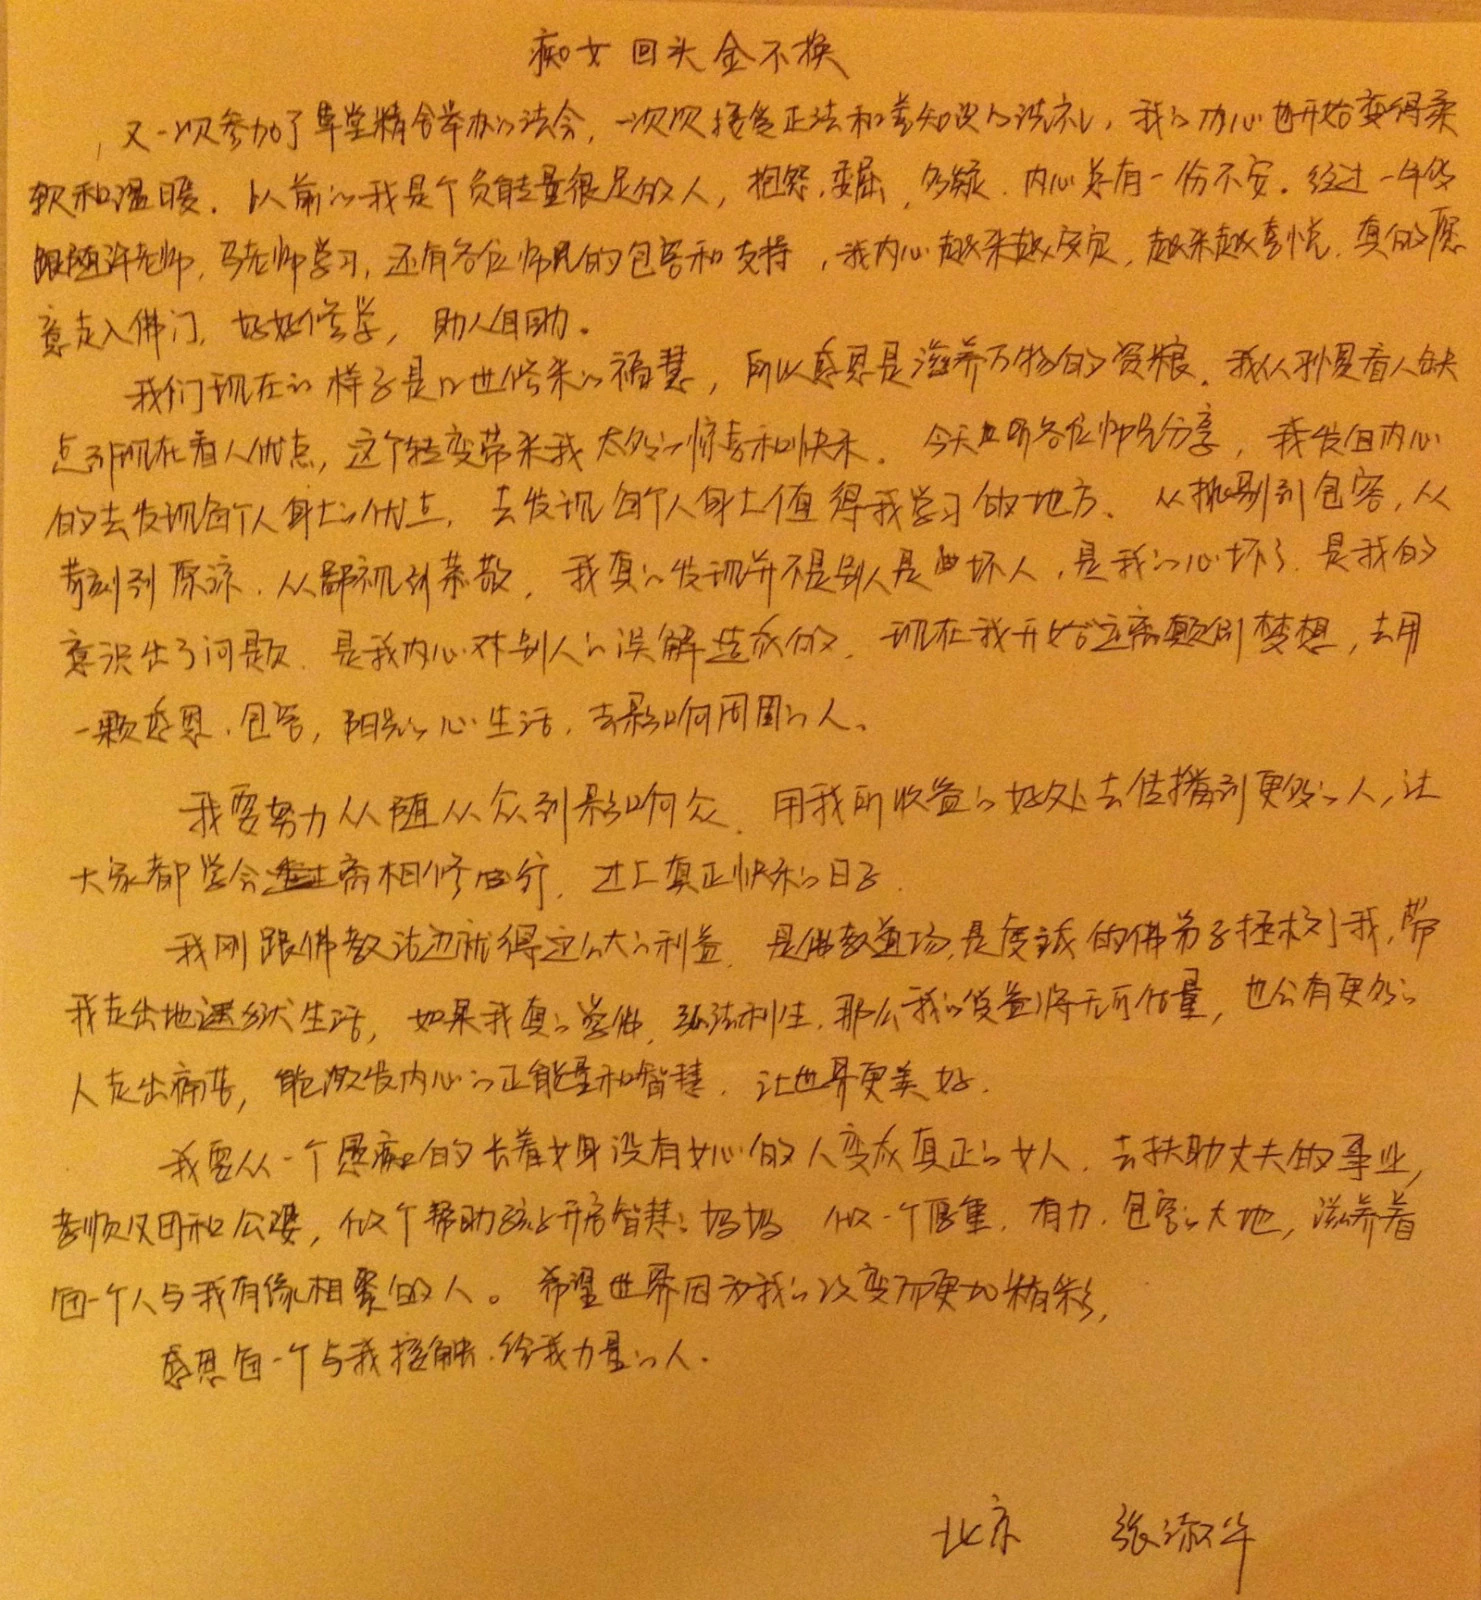 痴女回头金不换
又一次参加了草堂精舍举办的法会，一次次接受正法和善知识的洗礼，我的内心也开始变得柔
软和温暖。以前的我是个负能量很足的人，抱怨、委屈、多疑、内心总有一份不安。经过一年多
跟随许老师，马老师学习，还有各位师兄的包容和支持，我内心越来越安定，越来越喜悦，真的愿
意走入佛门，好好修学，助人自助。
我们现在的样子是以世修来的福慧，所以感恩是滋养万物的资粮。我从习惯看人缺
点到现在看人优点，这个转变带来我太多的惊喜和快乐。今天听各位师兄分享，我发自内心
的去发现每个人身上的优点，去发现每个人身上值得我学习的地方、从挑剔到包容，从
苛刻到原谅、从鄙视到恭敬，我真的发现并不是别人是坏人，是我的心坏了，是我的
意识出了问题，是我内心对别人的误解造成的，现在我开始远离颠倒梦想，去用
一颗感恩、包容，阳光的心生活，去影响周围的人。
我要努力从随从众到影响众，用我所收益的好处去传播到更多的人，让
大家都学会离相修行，过上真正快乐的日子。
我刚跟佛教沾边就得这么大的利益，是佛教道场，是虔诚的佛弟子拯救了我，带
我走出地狱生活，如果我真的学佛，弘法利生，那么我的受益将无可估量，也会有更多的
人走出痛苦，能激发内心的正能量和智慧，让世界更美好。
我要从一个愚痴的长着女身没有女心的人变成真正的女人，去扶助丈夫的事业，
孝顺父母和公婆，做个帮助孩子开启智慧的妈妈，做一个厚重，有力，包容的大地，滋养着
每一个人与我有缘相聚的人。希望世界因为我的改变而更加精彩，
感恩每一个与我接触、给我力量的人。
北京 张淑华